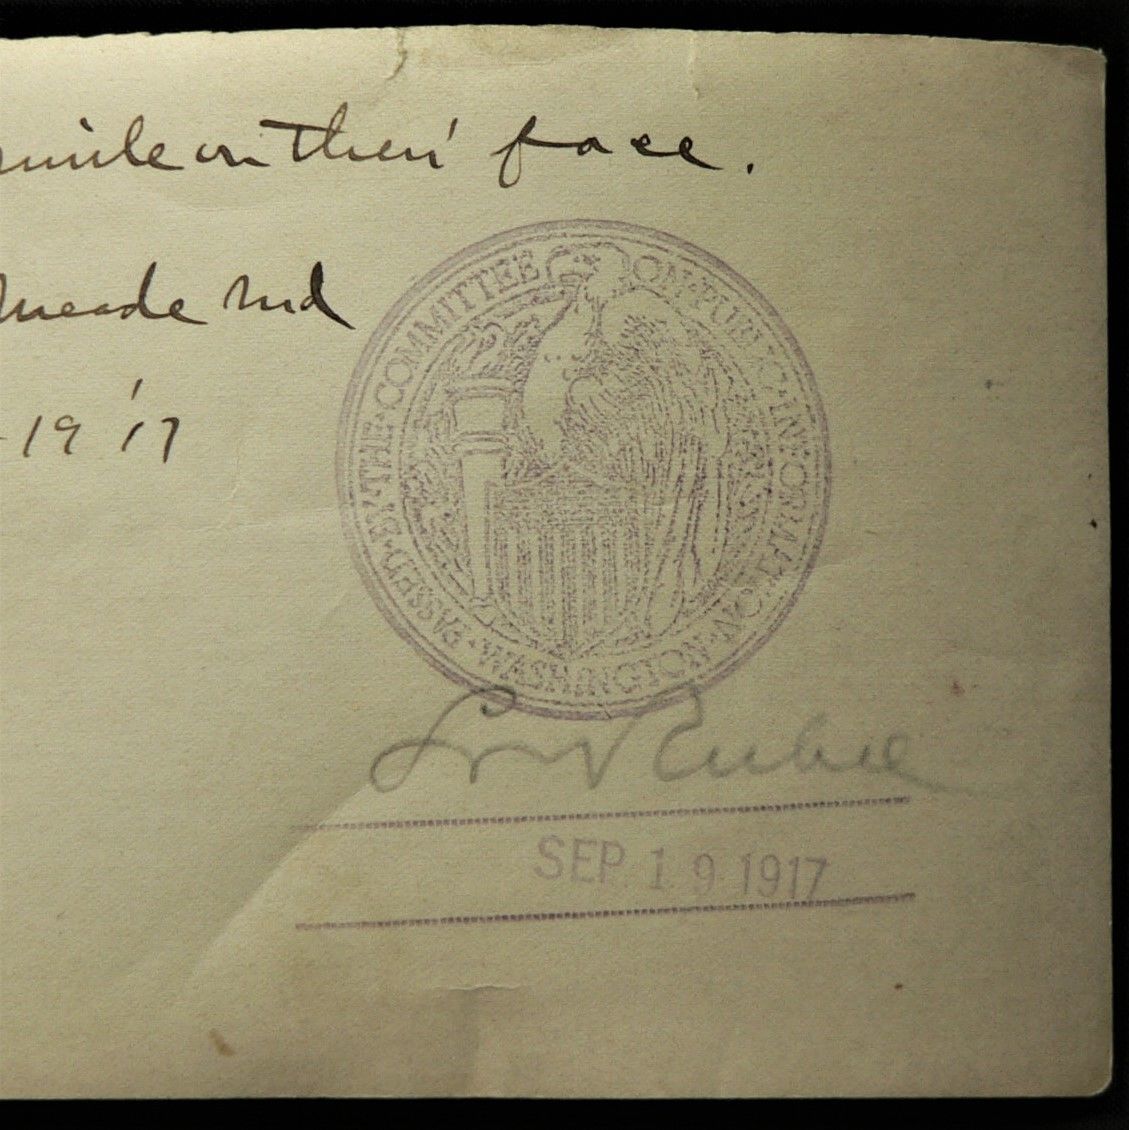 smile on their face.
Meade Md
-19 '17
PASSED·BY·THE·COMMITTEE ON·PUBLIC·INFORMATION·WASHINGTON·
SEP 19 1917